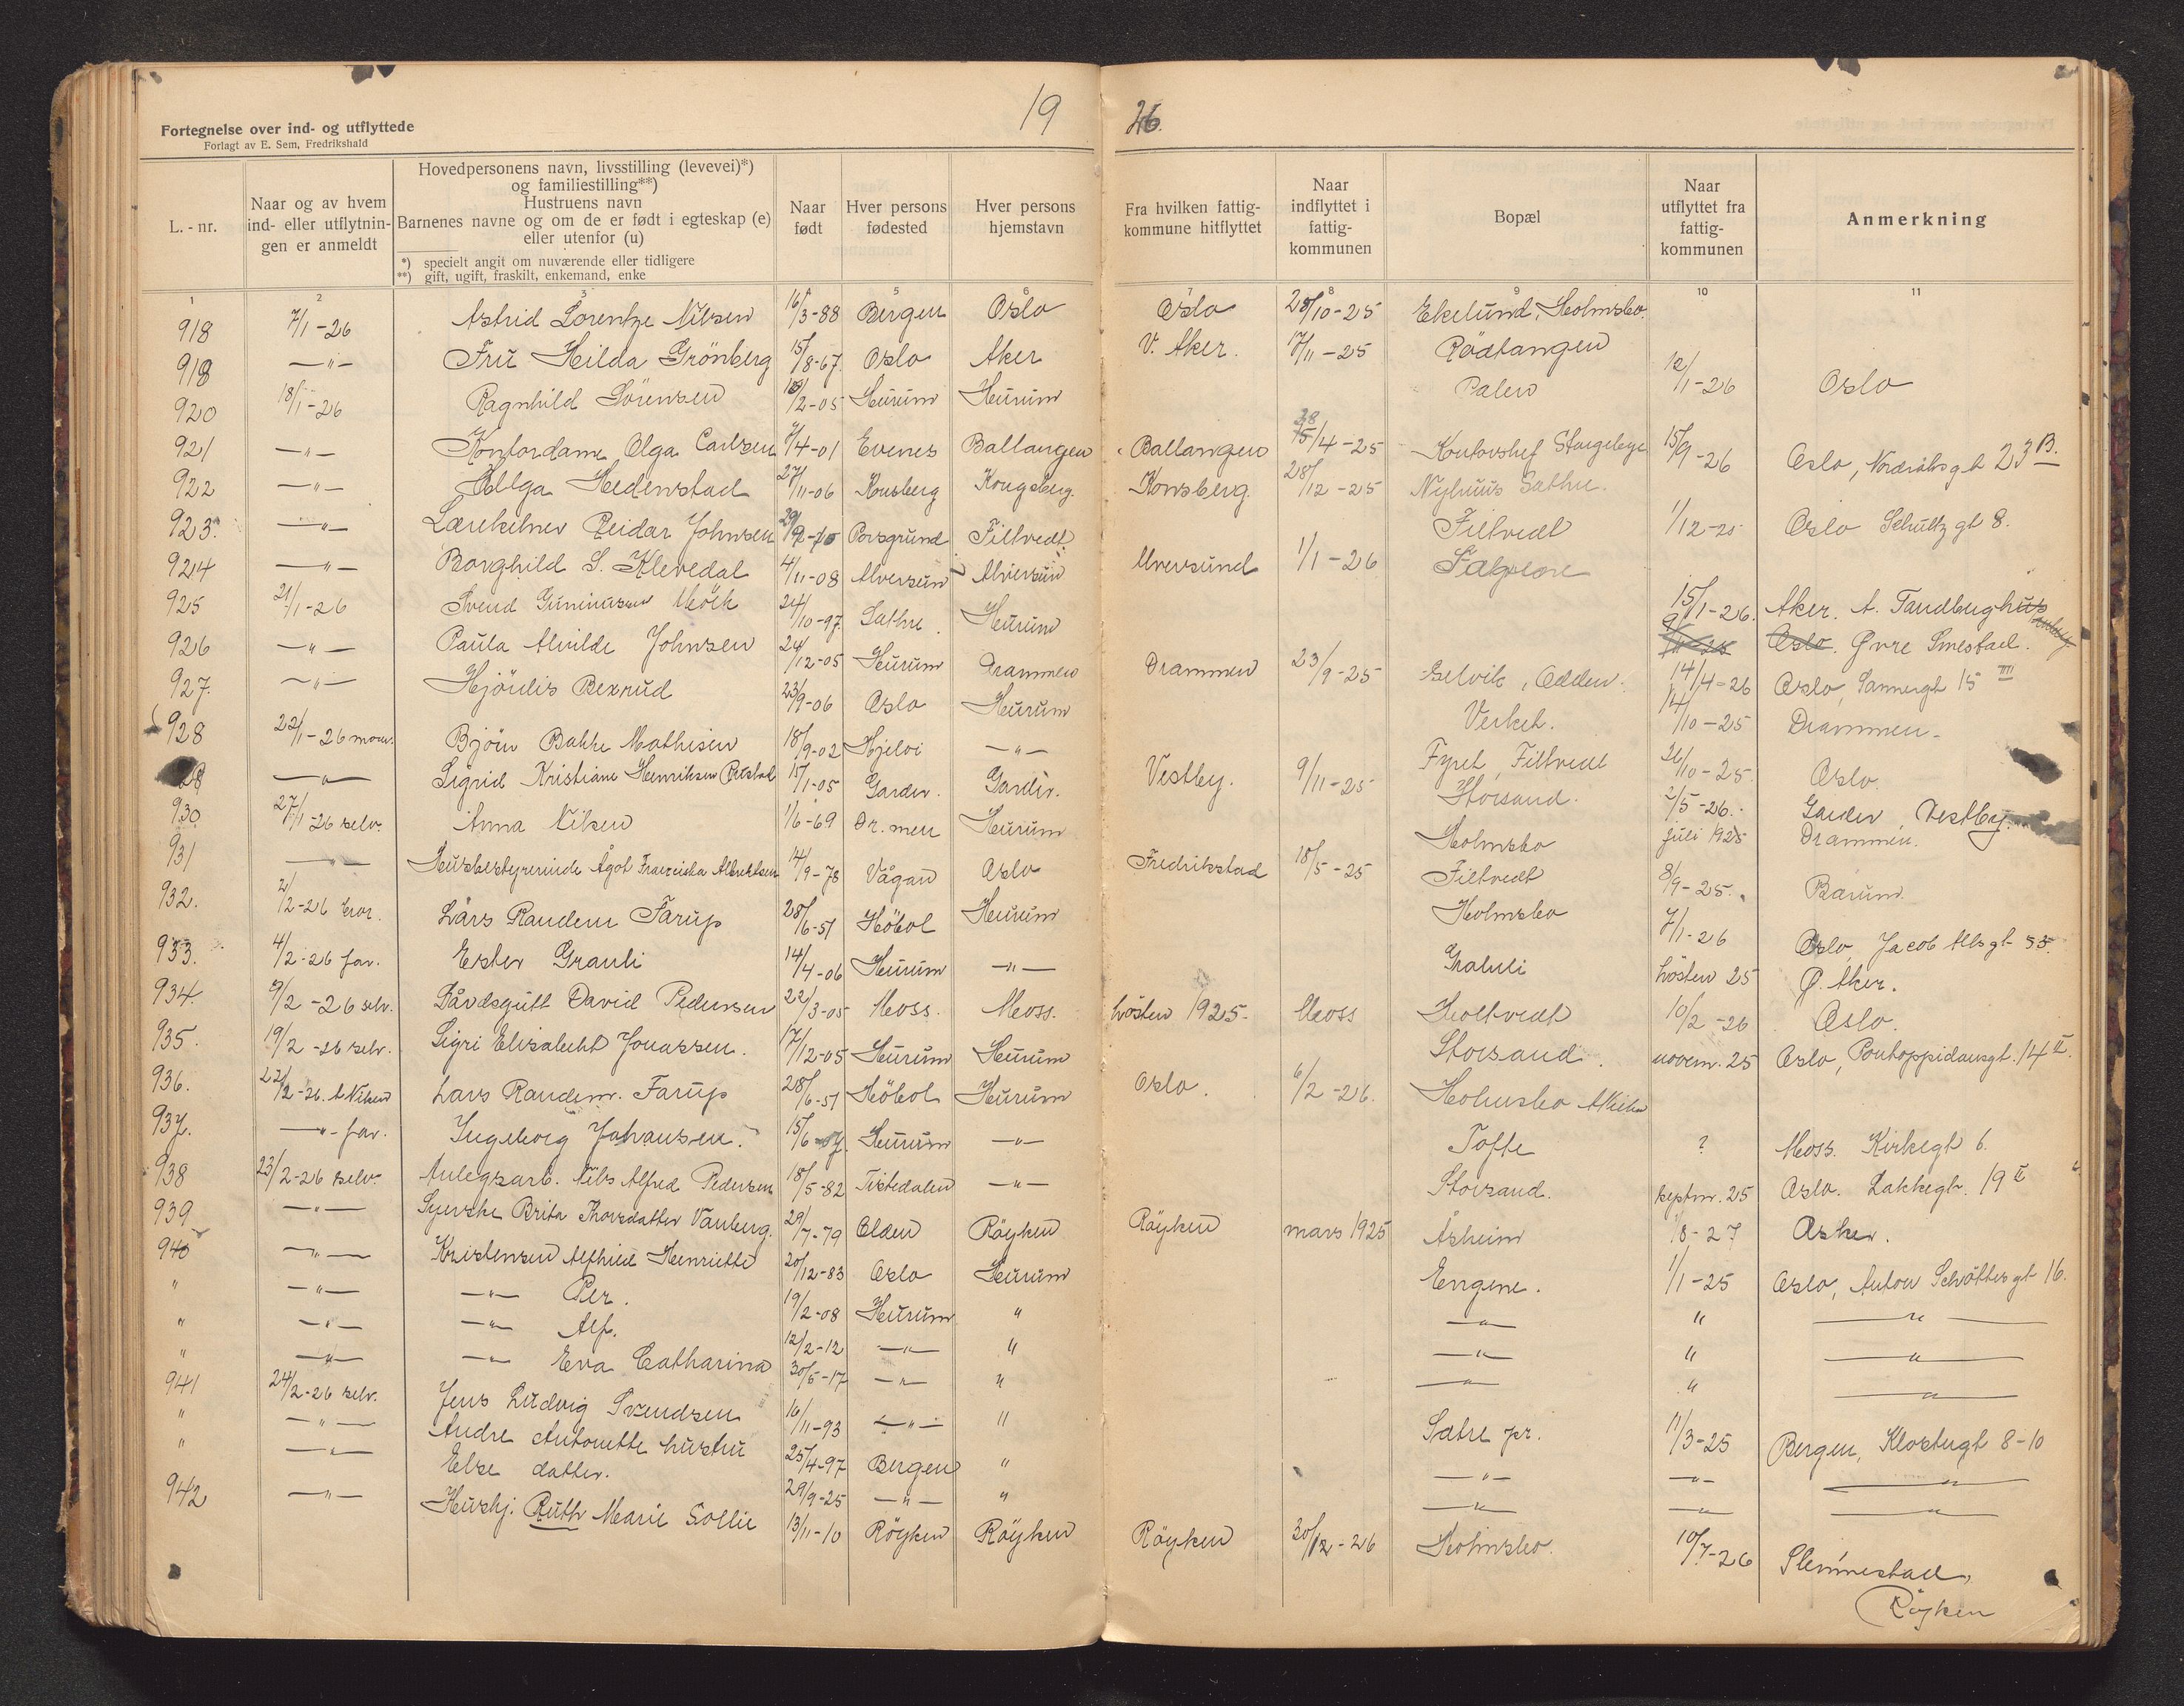 19 26.
Fortegnelse over ind- og utflyttede
Forlagt av E. Sem, Fredrikshald
L. - nr.
Naar og av hvem
ind- eller utflytnin-
gen er anmeldt
Hovedpersonens navn, livsstilling (levevei)*)
og familiestilling**)
Hustruens navn
Barnenes navne og om de er født i egteskap (e)
eller utenfor (u)
*) specielt angit om nuværende eller tidligere
**) gift, ugift, fraskilt, enkemand, enke
Naar
født
Hver persons
fødested
Hver persons
hjemstavn
Fra hvilken fattig-
kommune hitflyttet
Naar
indflyttet i
fattig-
kommunen
Bopæl
Naar
utflyttet fra
fattig-
kommunen
Anmerkning
1 2 3 5 6 7 8 9 10 11
918 7/1-26 Astrid Lorentze Nilsen 16/3-88 Bergen Oslo Oslo 28/10-25 Ekelund, Holmsbo.
918 -"- Fru Hilda Grönberg 15/8-67. Oslo Aker V. Aker. 17/11-25 Rödtangen
920 18/1-26 Ragnhild Sörensen /2-05 Hurum Hurum Palen 12/1-26 Oslo
921 -"- Kontordame Olga Carlsen 7/4-01 Evenes Ballangen Ballangen /4-25 Kontorshef 15/9-26 Oslo, 23 B.
922 -"- Helga Hedenstad 27/11-06 Konsberg Kongsberg. Konsberg. 28/12-25 Nyhuus Sathre.
923. -"- Lærekelner Reidar Johnsen 29/ Porsgrund Filtvedt. Filtvedt 1/12-25 Oslo Schultz gt 8.
924 -"- Borghild S. Klevedal 4/11-08 Alversund Alversund Alversund 1/1-26
925 21/1-26 Svend Guninusen 24/10-97. Sathre. Hurum 15/1-26. Aker. A. Tandberg
926 -"- Paula Alvilde Johnsen 24/12-05 Hurum Drammen Drammen 23/9-25 Selvik, Odden. Oslo. Øvre Smestad.
927. -"- Hjördis Bexrud 23/9-06 Oslo Hurum Verket. 14/4-26 Oslo, Sannergt 15 III
928 22/1-26 Björn Bakke Mathisen 18/9-02 -"- Fyret, Filtvedt 14/10-25 Drammen.
28 -"- Sigrid Kristiane Henriksen 15/1-05 Garder. Garder. Vestby. 9/11-25 Storsand. 26/10-25. Oslo.
930 27/1-26 selv. Anna Nilsen 1/6-69 Dr. men Hurum Holmsbo 2/5-26. Garder Vestby.
931 -"- Husbestyrerinde Ågot Franciska Albrektsen 14/9-78 Vågan Oslo Fredrikstad 18/5-25 Filtvedt juli 1925 Drammen.
932. 2/2-26 Lårs Randem Fårup 28/6-51 Höbol Hurum Holmsbo 8/9-25. Bærum
933. 4/2-26 far. Ester Grauli 14/4-06 Hurum -"- Grauli 7/1-26 Oslo, Jacob Allsgt 55.
934 9/2-26 selv. Gårdsgutt David Pedersen 22/3-05 Moss. Moss. hösten 1925. Moss Holtvedt hösten 25 Ø. Aker.
935. 19/2-26 selv. Sigri Elisabeht Jonassen. 17/12-05 Hurum Hurum Storsand. 10/2-26 Oslo.
936. 22/2-26. A. Nilsen Lars Randem. Farup 28/6-51 Höbol Hurum Oslo. 6/2-26. Holmsbo novem. 25 Oslo, Pontoppidansgt. 14 II.
937. -"- far. Ingeborg Johansen. 15/6-07. Hurum -"- Tofte ? Moss. Kirkegt 6.
938 23/2-26 selv Anlegsarb. Nils Alfred Pedersen 18/5-82 Tistedalen -"- Storsand. septm. 25 Oslo. Lakkegt. 19 II
939 -"- Syerske Brita Thorsdatter Vanberg. 29/7-79 Röyken Röyken mars 1925 Åsheim 18-27 Asker.
940 -"- Kristensen Alfhild Henriette 20/12-83 Oslo Hurum Engene. 1/1-25 Oslo, Anton Schöttesgt 16.
" -"- -"- Per. 19/2-08 Hurum " -"- " -"-
" -"- -"- Alf. 12/2-12 -"- " -"- " -"-
" -"- -"- Eva Catharina 30/5-17 -"- " -"- " -"-
941 24/2-26 selv. Jens Ludvig Svendsen 16/11-93 -"- " Satre pr. 11/3-25 Bergen, Klostergt 8-10
" -"- Andre Antonette hustru 25/4-97 Bergen " -"- -"- -"-
" -"- Else datter. 29/9-25 -"- " -"- -"- -"-
942 -"- Hushj. Ruth Marie Sollie 13/11-10 Röyken Röyken Röyken 30/12-26 Holmsbo. 10/7-26 Slemmestad,
Röyken